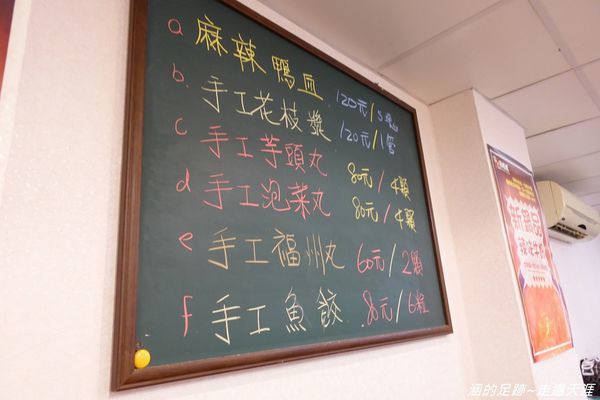 a 麻辣鴨血 120元/5塊
b. 手工花枝漿 120元/1管
c 手工芋頭丸 80元/4顆
d 手工泡菜丸 80元/4顆
e 手工福州丸 60元/2顆
f 手工魚餃 80元/6粒
新鍋品
涵的足跡~走遍天涯